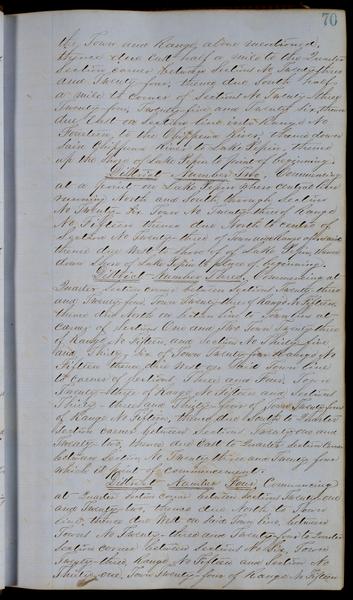 70
the Town and Range above mentioned.
Thence due East half a mile to the Quarter
Section corner between Sections No Twenty three
and Twenty four, thence due South half
a mile to corner of Sections No Twenty three
Twenty four, Twenty five and Twenty Six, thence
due East on Section line into Range No
Fourteen, to the Chippewa River, thence down
Said Chippewa River to Lake Pepin, thence
up the Shore of Lake Pepin to point of beginning.
District Number Two, Commencing
at a point on Lake Pepin where central line
running North and South through Section
No Twenty Six Town No Twenty three of Range
No Fifteen thence due North to centre of
Section No Twenty three of Town and Range aforesaid
thence due West to Shore of Lake Pepin, thence
down Shore of Lake Pepin to place of beginning.
District Number Three, Commencing at
Quarter Section corner between Sections Twenty three
and Twenty four, Town Twenty three of Range No Fifteen,
thence due North on Section line to Town line at
corner of Sections One and Two Town Twenty three
of Range No Fifteen, and Section No Thirty five
and Thirty Six of Town Twenty four Range No
Fifteen thence due West on Said Town line
to corner of Sections, Three and Four, Town
Twenty three of Range No Fifteen and Sections
Thirty three and Thirty four of Town Twenty four
of Range No Fifteen, thence due South to Quarter
Section corner between Sections Twenty one and
Twenty two, thence due East to Quarter Section corner
between Section No Twenty three and Twenty four
which is point of commencement.
District Number Four, Commencing
at Quarter Section corner between Sections Twenty one
and Twenty two, thence due North to Town
line, thence due West on Said Town line, between
Towns No Twenty three and Twenty four to Quarter
Section corner between Sections No Six, Town
Twenty three, Range No Fifteen and Section No
Thirty one, Town Twenty four of Range No Fifteen